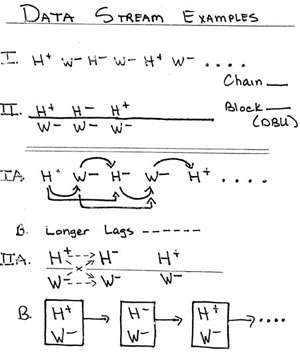 DATA STREAM EXAMPLES
I. H+ W- H- W- H+ W- ....
Chain __
II. H+ H- H+
W- W- W-
Block __
(DBU)
IA. H+ W- H- W- H+ ....
B. Longer Lags ------
IIA. H+ H- H+
W- W- W-
B. H+ H- H+ ....
W- W- W-